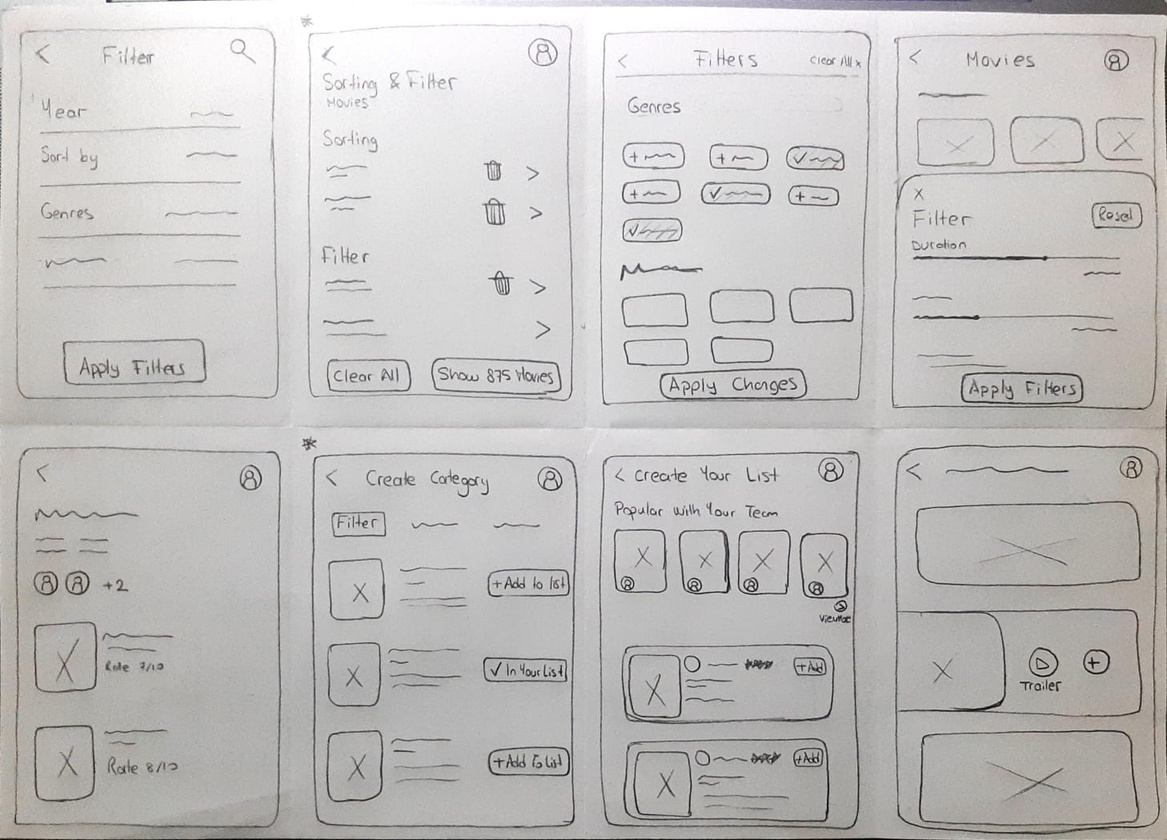 Filter
Year
Sort by
Genres
Apply Filters
Sorting & Filter
Movies
Sorting
Filter
Clear All
Show 875 Movies
Filters
Clear All x
Genres
Apply Changes
Movies
x
Filter
Reset
Duration
Apply Filters
+2
Rate 7/10
Rate 8/10
Create Category
Filter
+ Add to list
✓ In Your List
+ Add To List
Create Your List
Popular with Your Team
+ Add
+ Add
Trailer